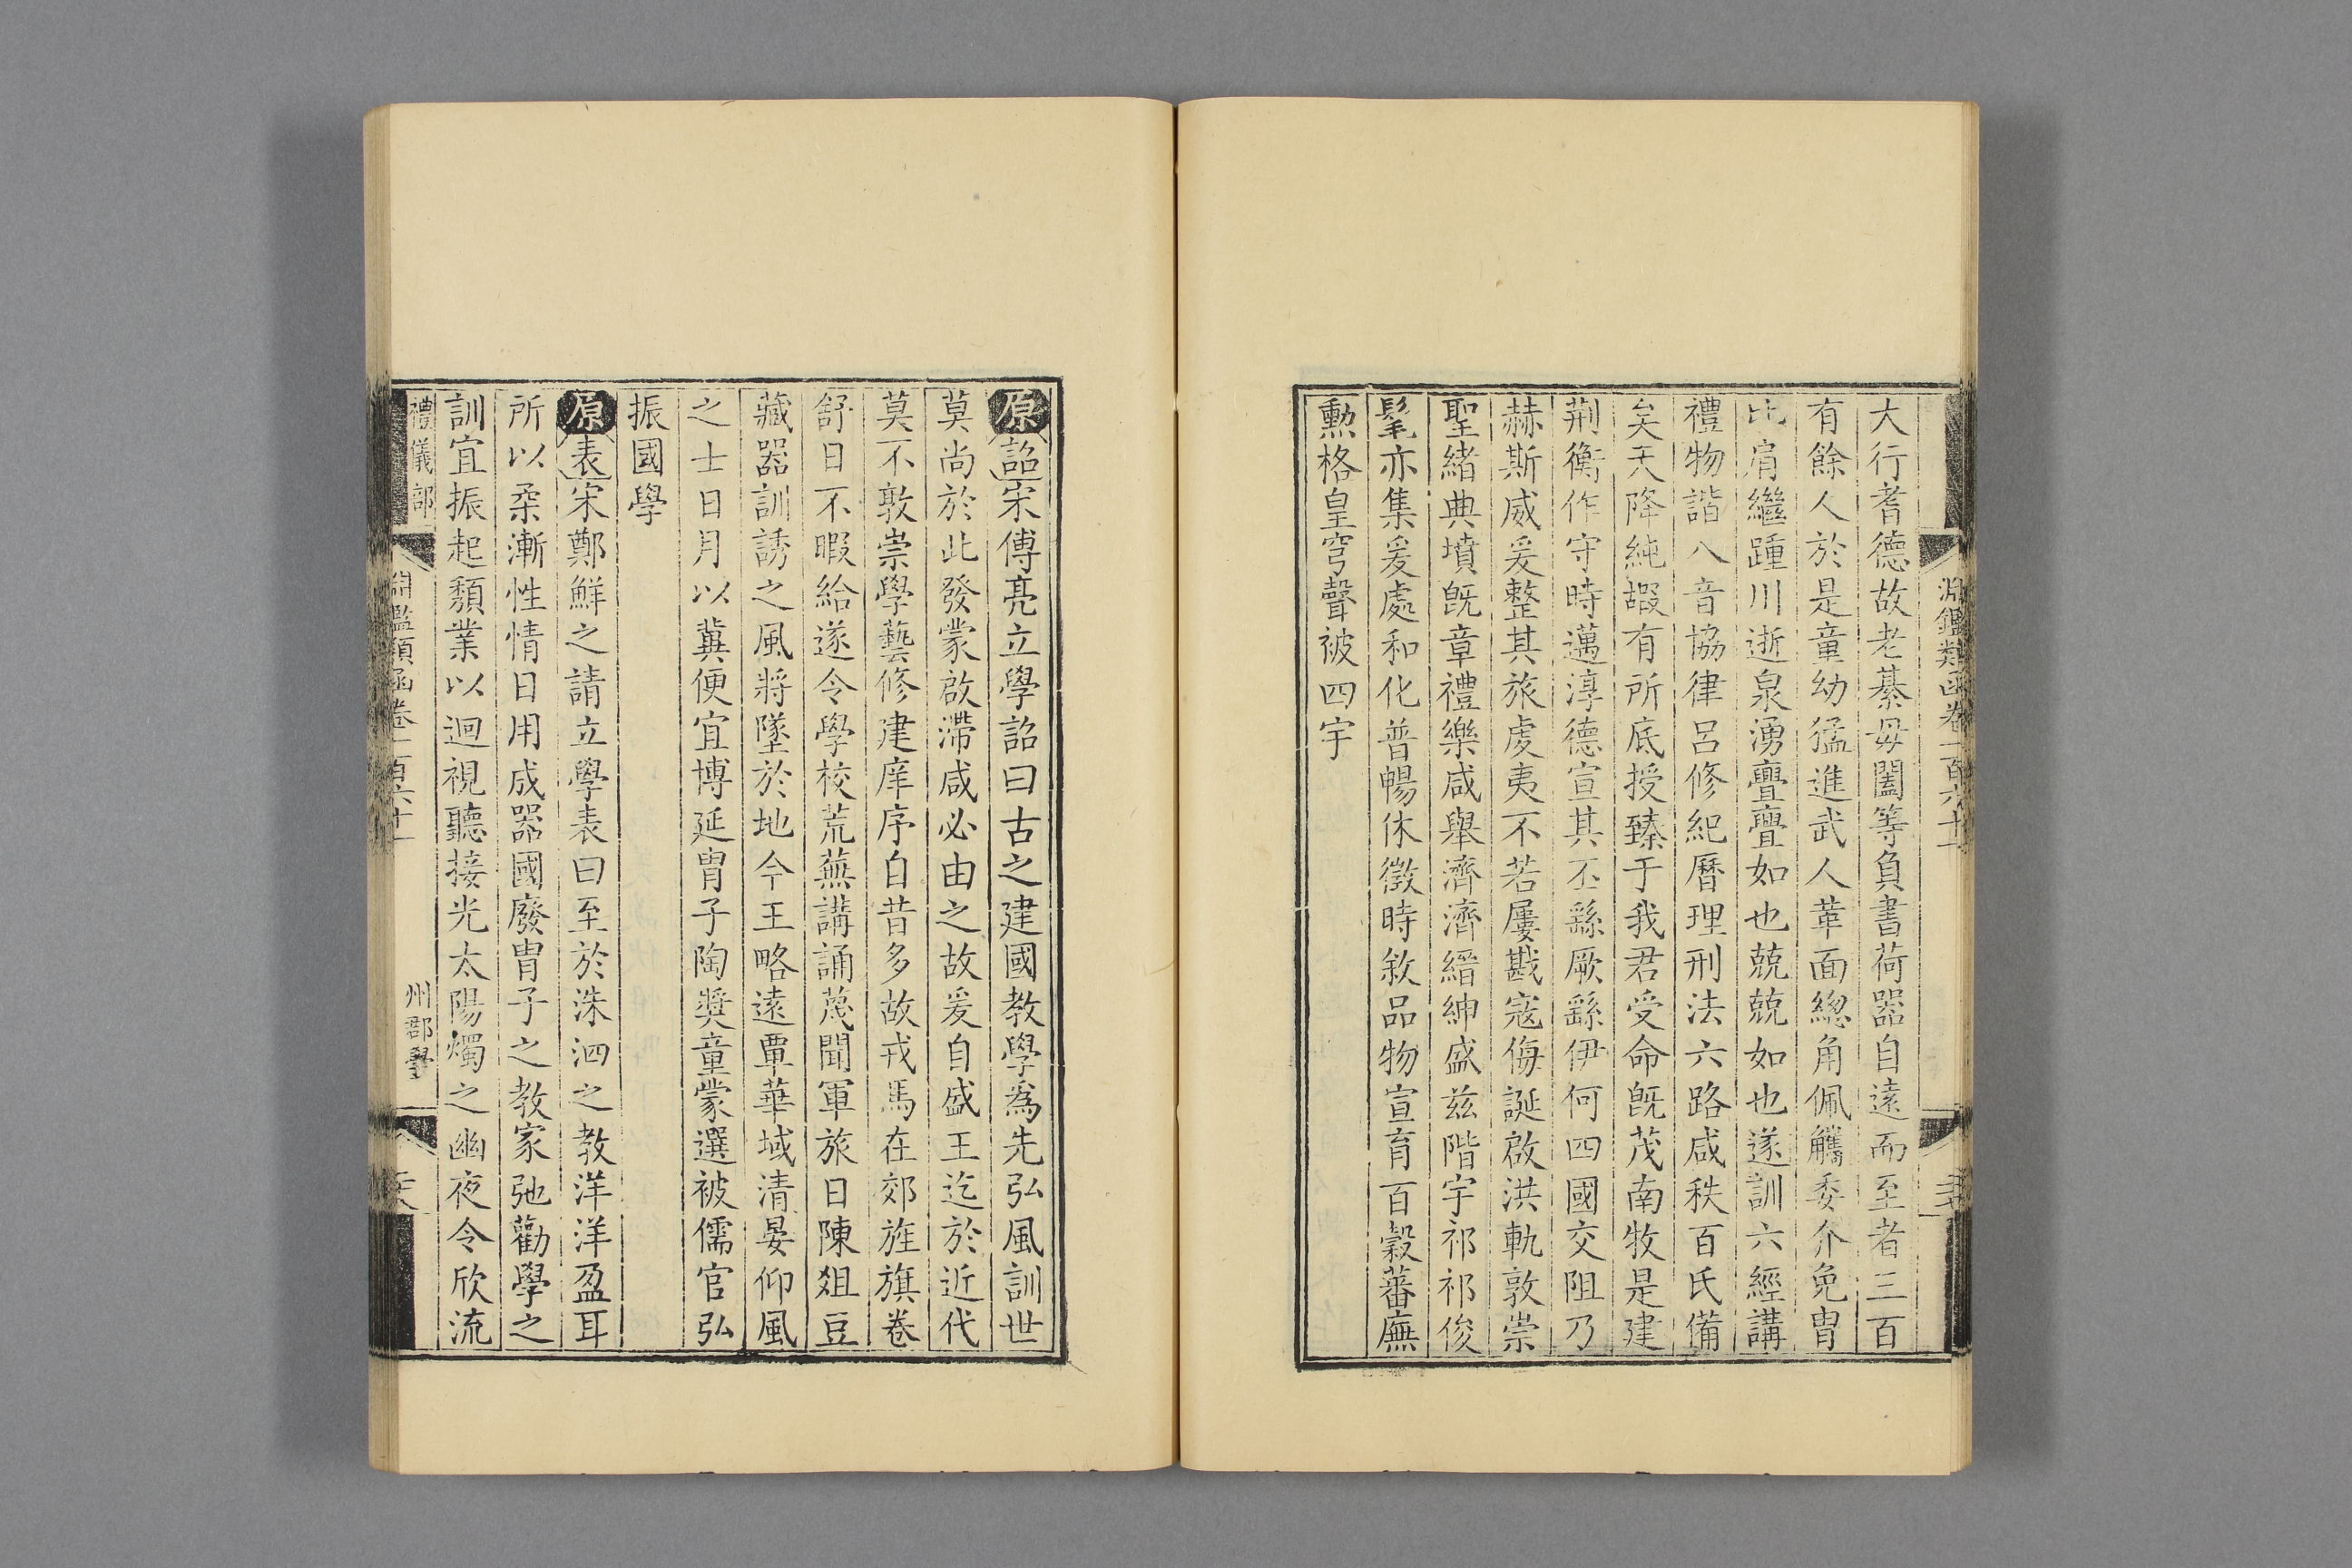 淵鑑類函卷一百六十一
大行耆德故老綦毋闓等負書荷器自遠而至者三百
有餘人於是童幼猛進武人革面緫角佩觿委介免胄
比肩繼踵川逝泉湧亹亹如也兢兢如也遂訓六經講
禮物諧八音協律呂修紀曆理刑法六路咸秩百氏備
矣天降純嘏有所底授臻于我君受命旣茂南牧是建
荆衡作守時邁淳德宣其丕繇厥繇伊何四國交阻乃
赫斯威爰整其旅虔夷不若屢戡寇侮誕啟洪軌敦崇
聖緒典墳旣章禮樂咸舉濟濟縉紳盛兹階宇祁祁俊
髦亦集爰處和化普暢休徵時敘品物宣育百穀蕃廡
勲格皇穹聲被四宇
原詔宋傅亮立學詔曰古之建國教學為先弘風訓世
莫尚於此發蒙啟滯咸必由之故爰自盛王迄於近代
莫不敦崇學藝修建庠序自昔多故戎馬在郊旌旗卷
舒日不暇給遂令學校荒蕪講誦蔑聞軍旅日陳俎豆
藏器訓誘之風將墜於地今王略遠覃華域清晏仰風
之士日月以冀便宜博延胄子陶奬童蒙選被儒官弘
振國學
原表宋鄭鮮之請立學表曰至於洙泗之教洋洋盈耳
所以柔漸性情日用成器國廢胄子之教家弛勸學之
訓宜振起頽業以迴視聽接光太陽燭之幽夜令欣流
禮儀部
淵鑑類函卷一百六十一
州郡學